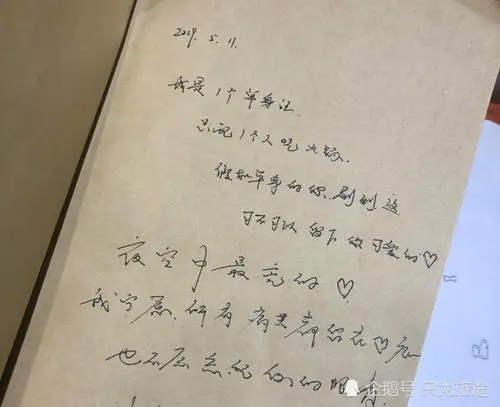 2019. 5. 11.
我是1个单身汪
只配1个人吃火锅.
假如单身的你.刷到.这
可不可以留下你可爱的♡
夜空中最亮的♡
我宁愿.所有痛苦都留在心底
也不愿忘记你的眼睛
企鹅号 只为旅途